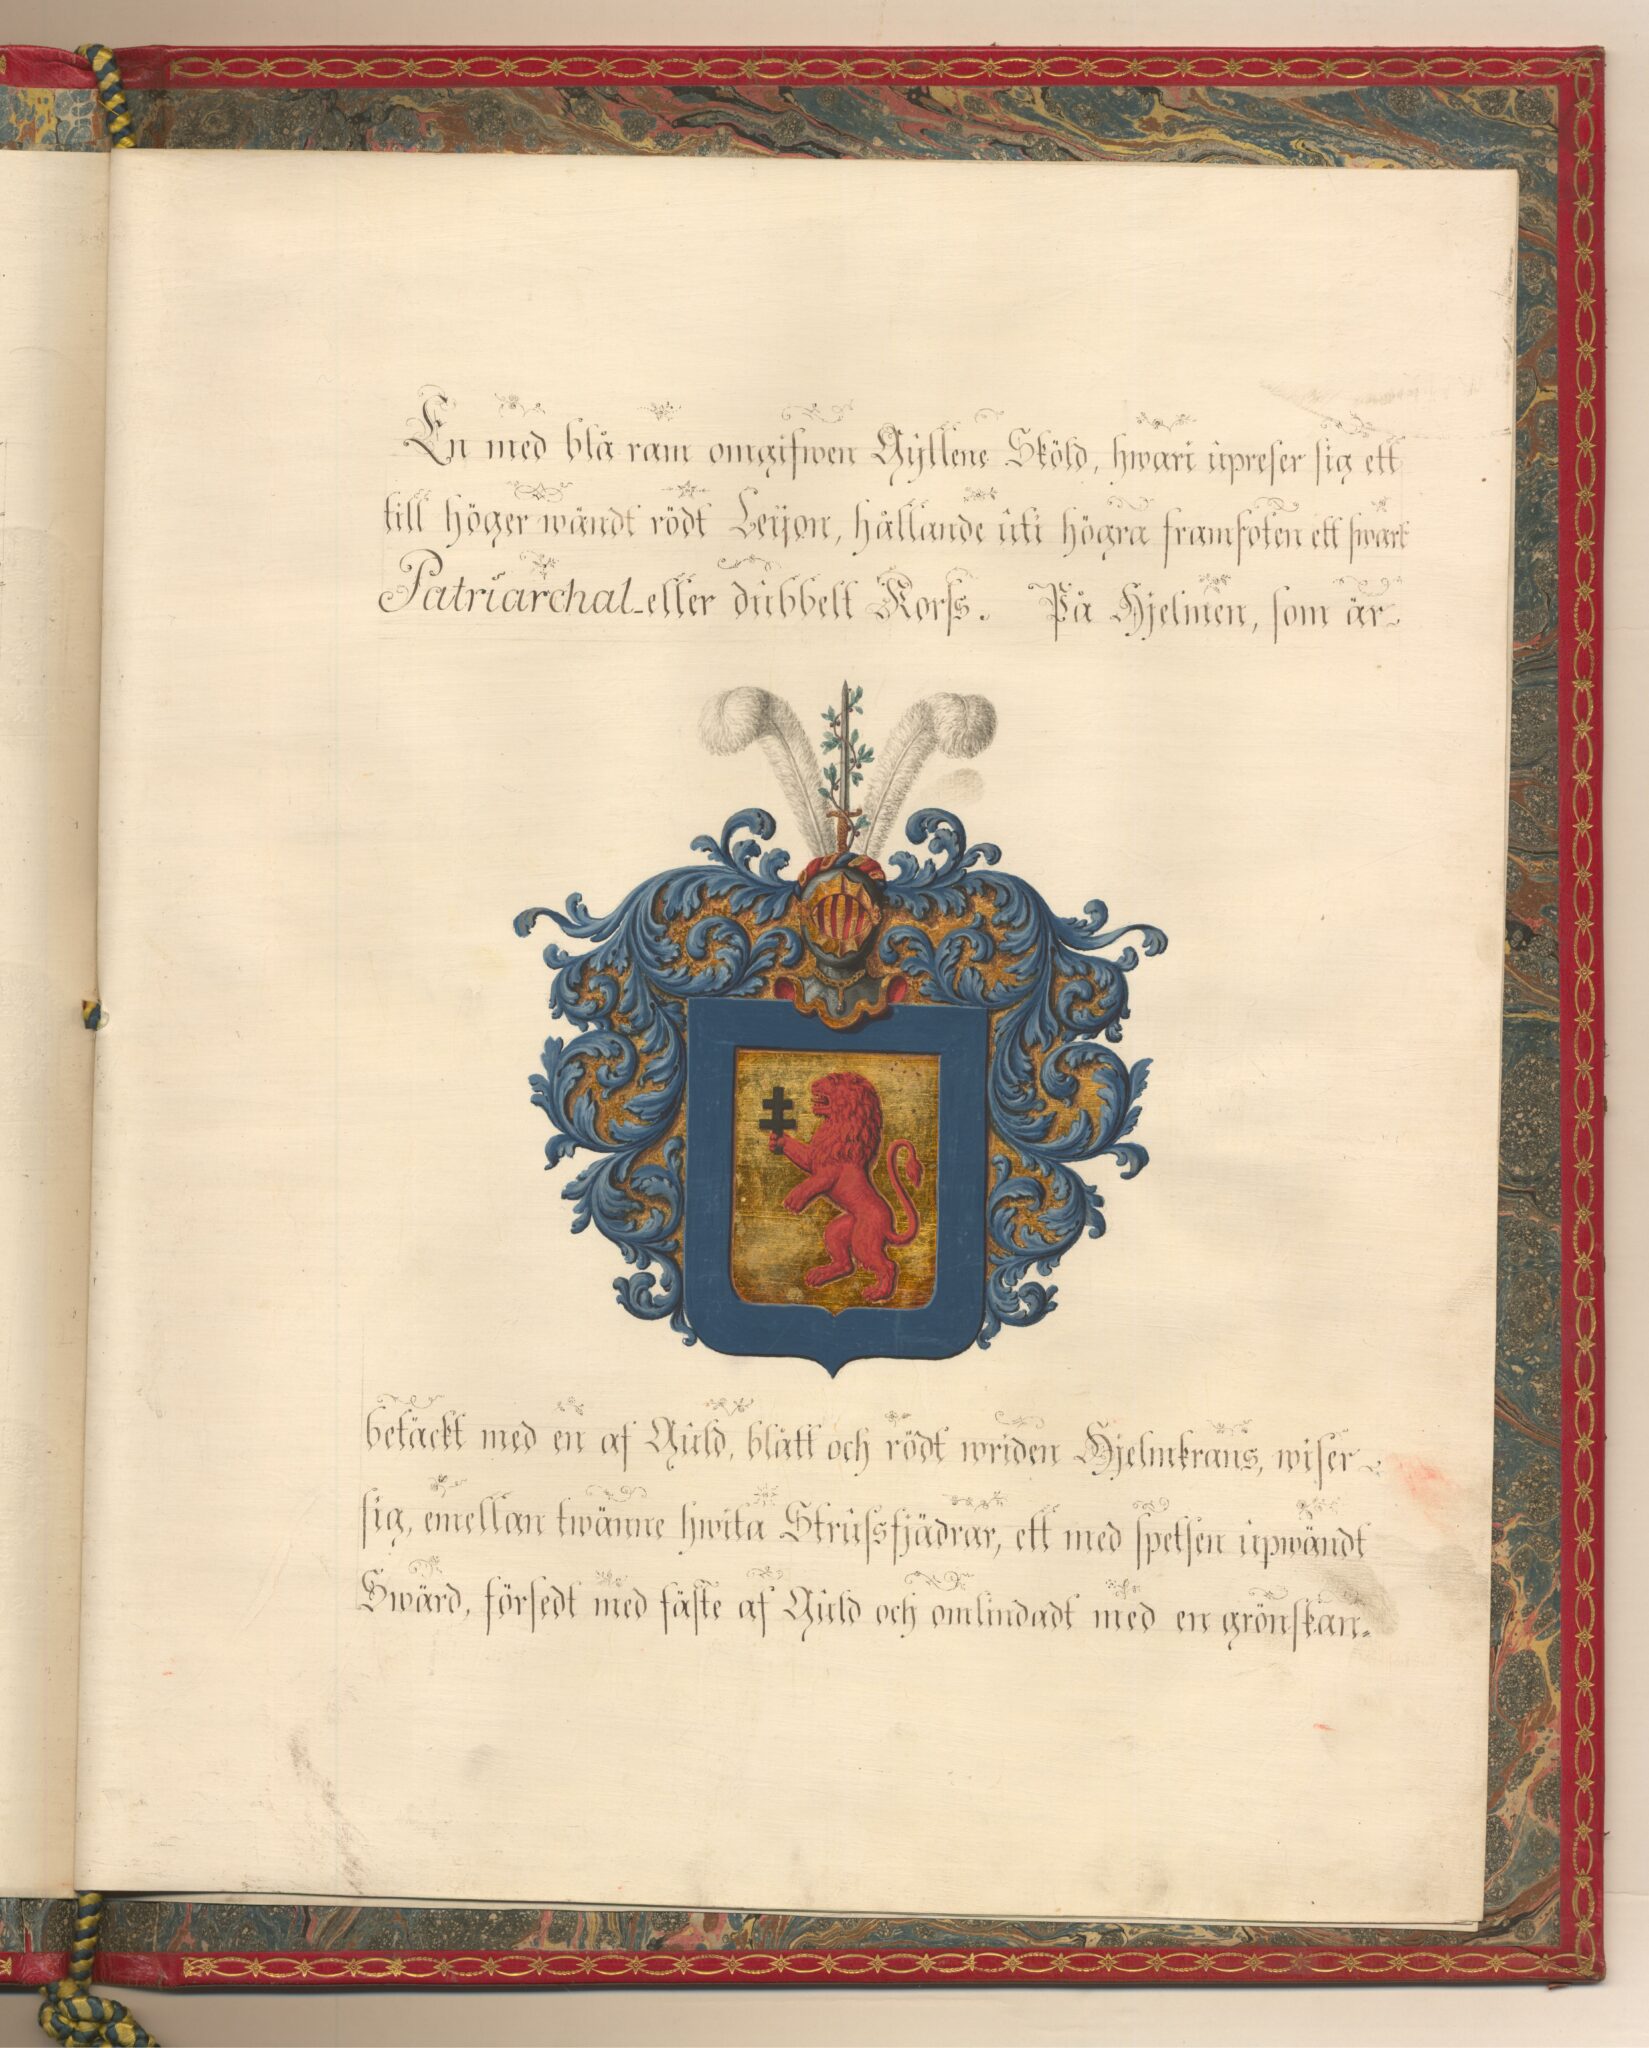 En med blå ram omgifwen Gyllene Sköld, hwari upreser sig ett
till höger wändt rödt Leijon, hållande uti högra framfoten ett swart
Patriarchal-eller dubbelt Korss. På Hjelmen, som är
betäckt med en af Guld, blått och rödt wriden Hjelmkrans, wiser
sig, emellan twänne hwita Strussfjädrar, ett med spetsen upwändt
Swärd, försedt med fäste af Guld och omlindadt med en grönskan-